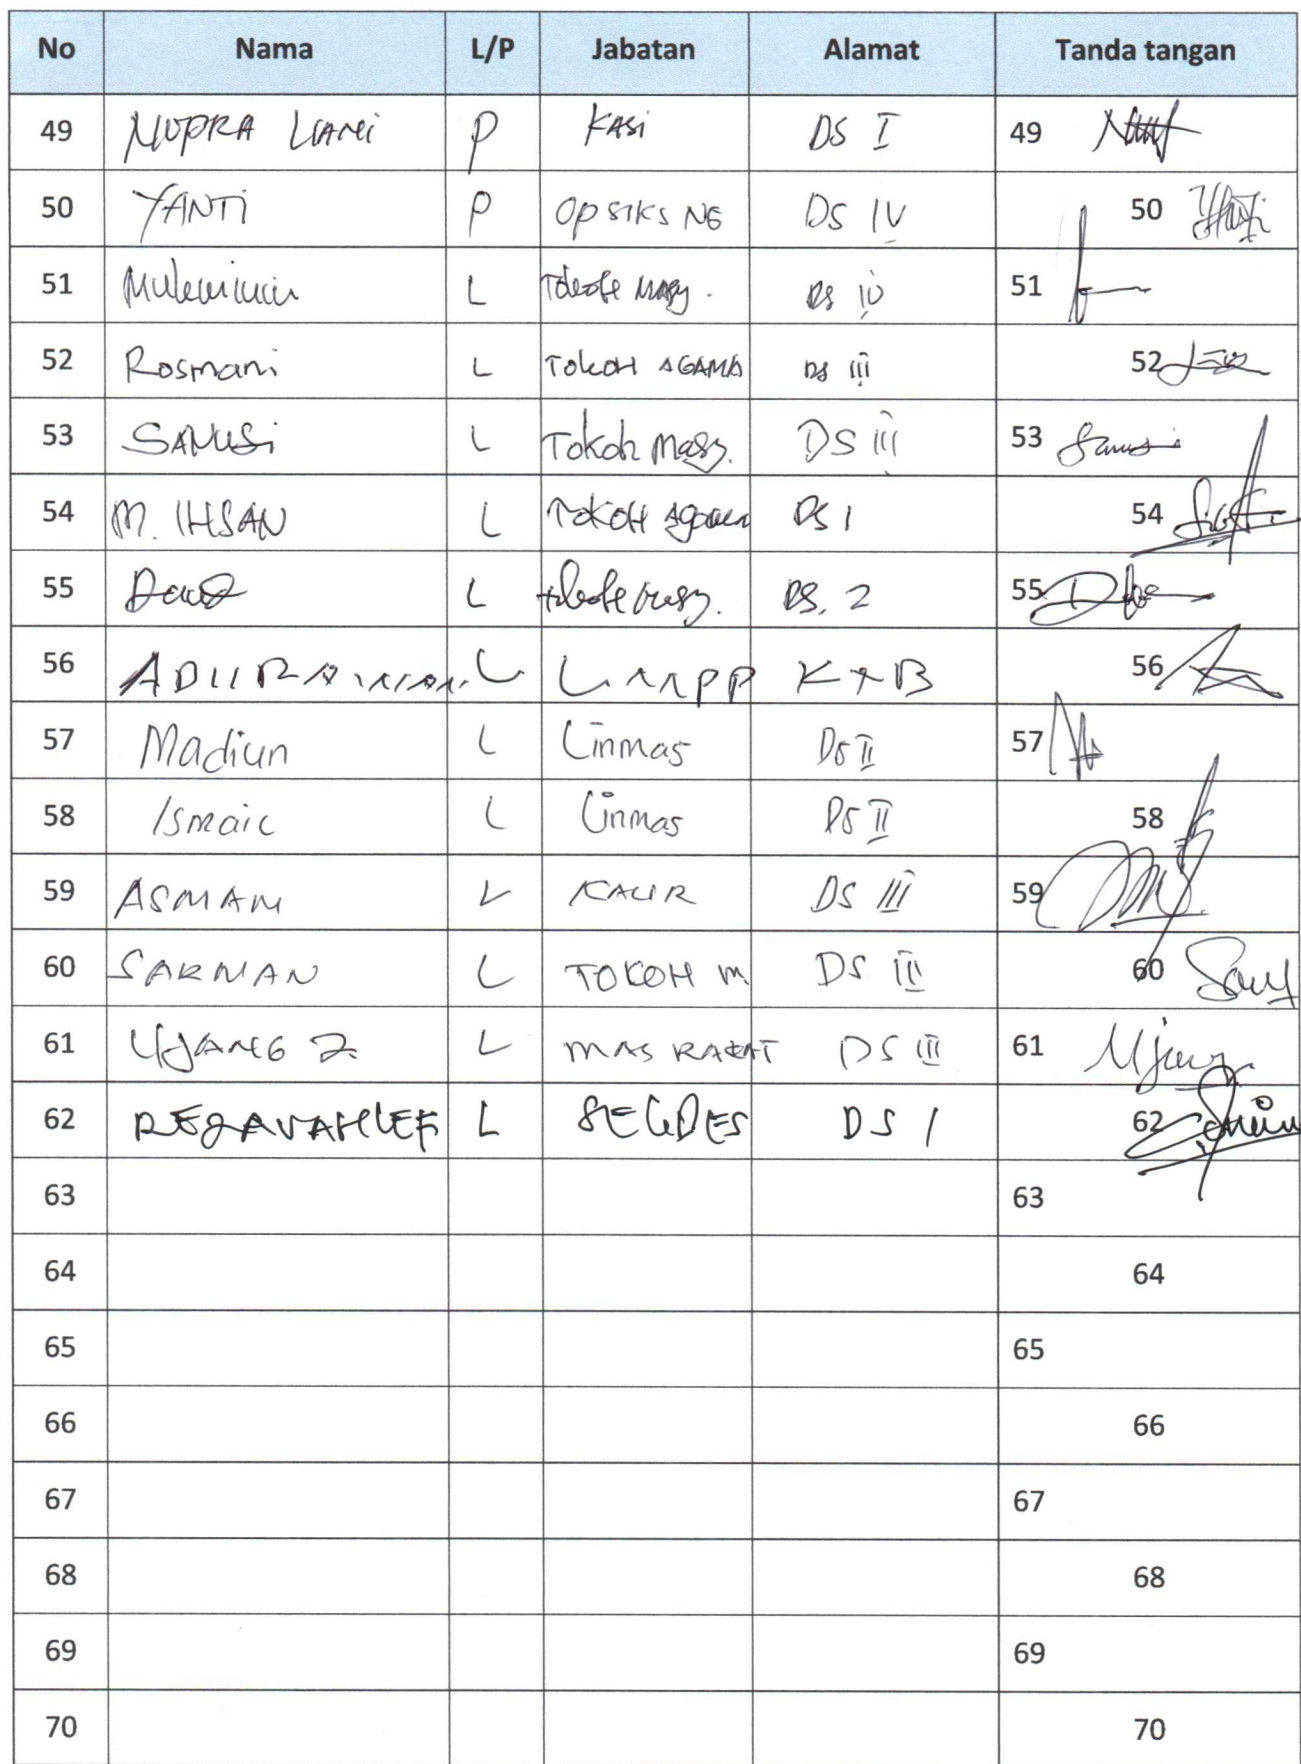 No Nama L/P Jabatan Alamat Tanda tangan
49 NOPRA LIANI P KASI DS I 49
50 YANTI P OP SIKS NG DS IV 50
51 L Tokoh Masy. DS IV 51
52 Rosmani L TOKOH AGAMA DS III 52
53 SANUSI L Tokoh Masy. DS III 53 Sanusi
54 M. IHSAN L TOKOH Agama DS 1 54
55 L Tokoh masy. DS. 2 55
56 L 56
57 Madiun L Linmas DS II 57
58 Ismail L Linmas DS II 58
59 ASMAM L KAUR DS III 59
60 SARMAN L TOKOH M. DS III 60
61 UJANG Z. L MAS RAKAT DS III 61
62 L SEKDES DS 1 62
63 63
64 64
65 65
66 66
67 67
68 68
69 69
70 70